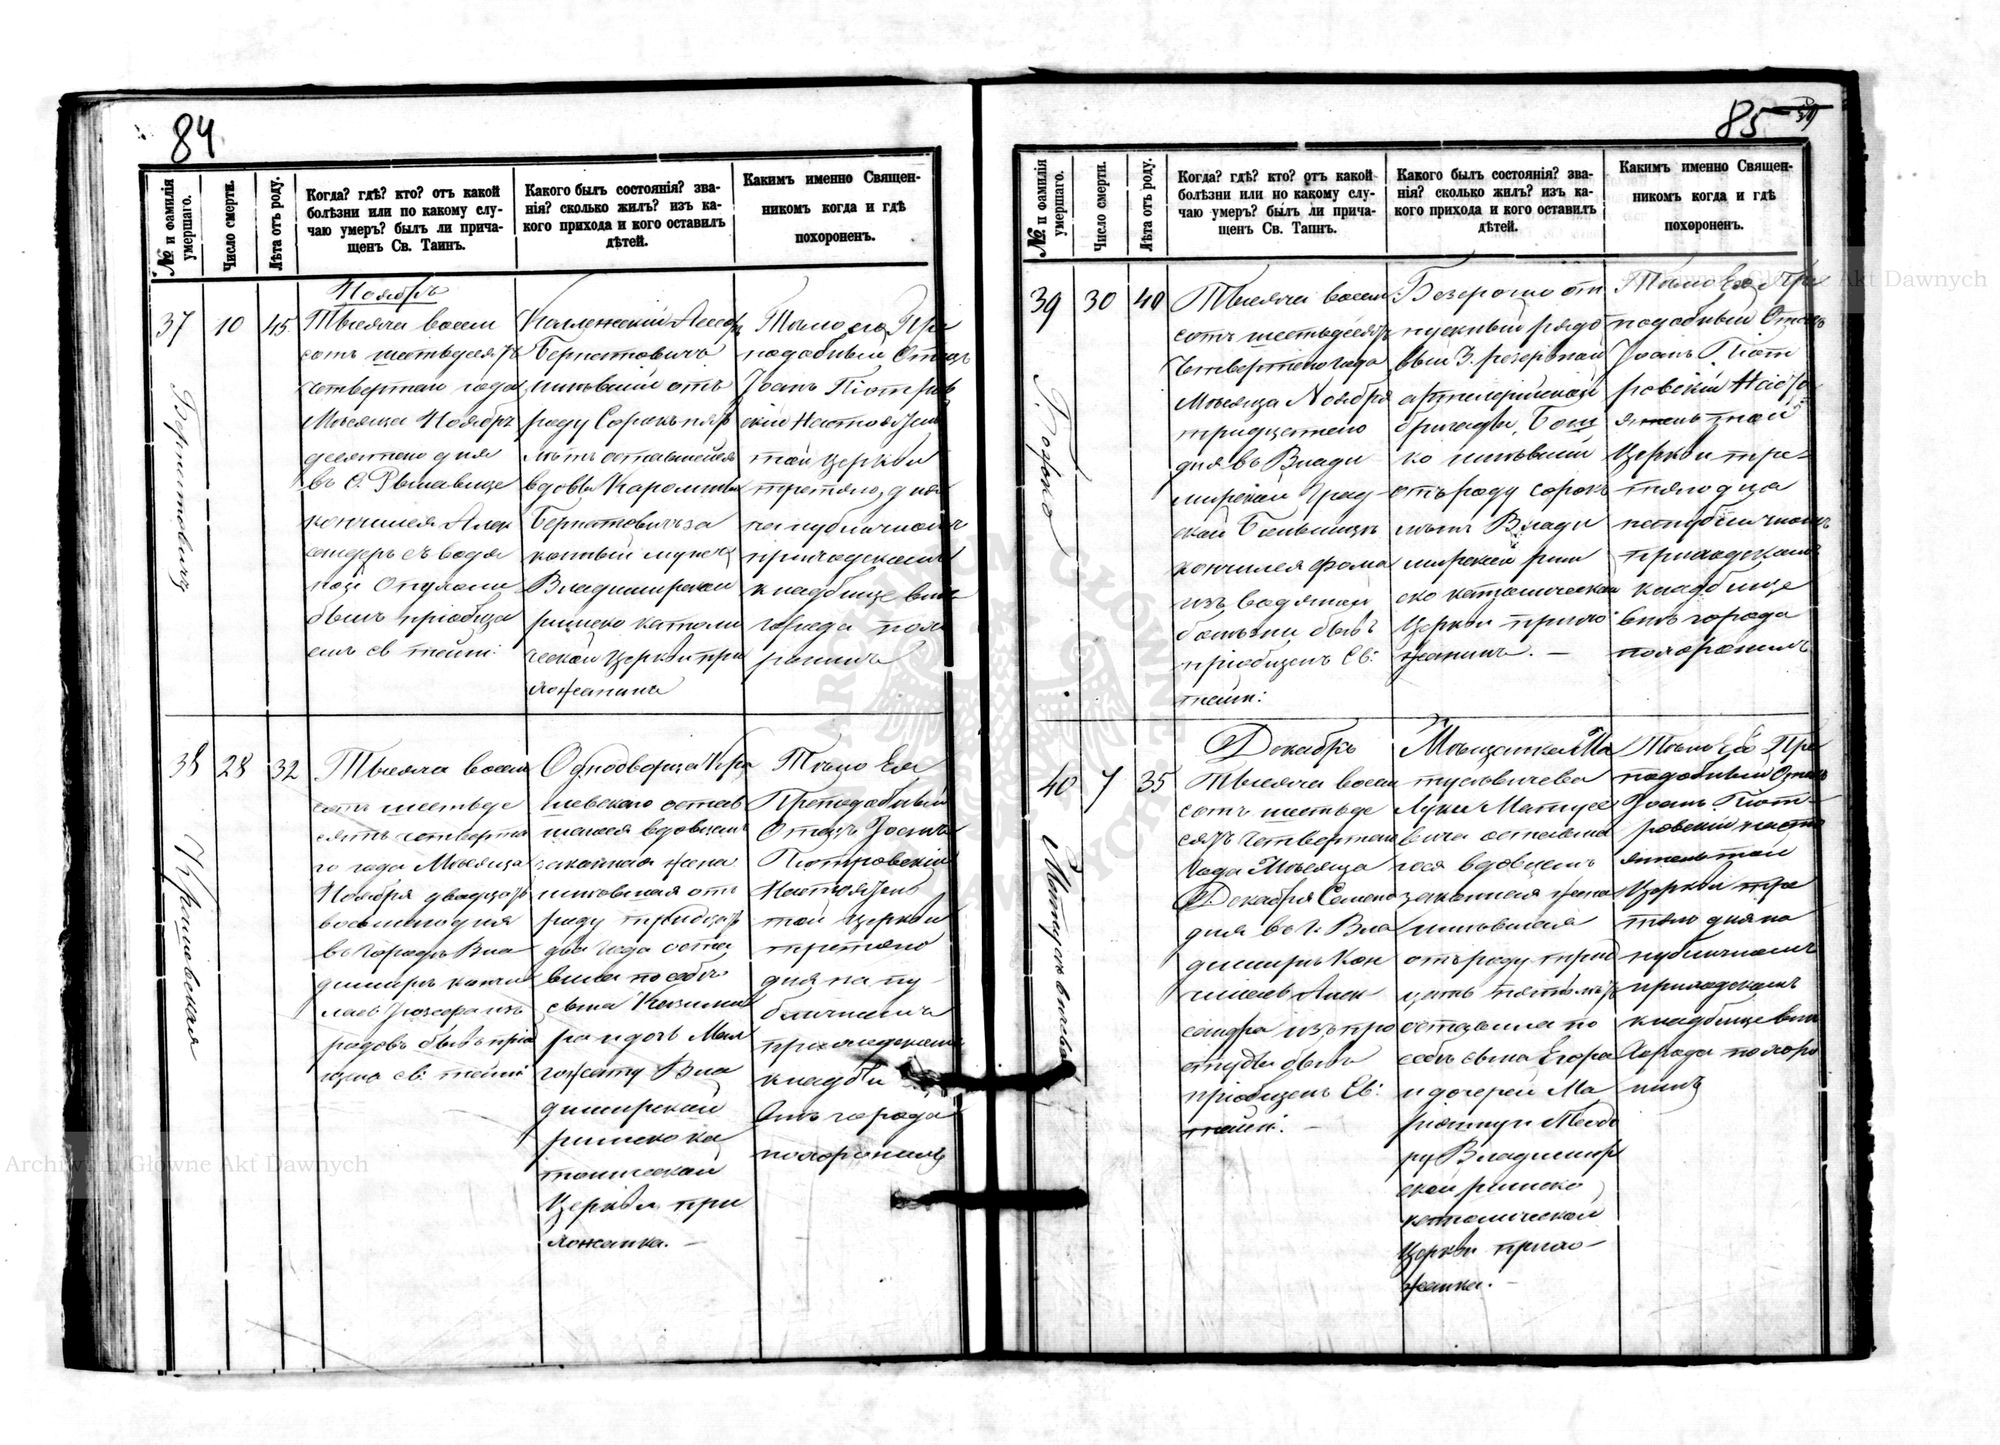 84
№. и фамилія умершаго.
Число смерти.
Лѣта отъ роду.
Когда? гдѣ? кто? отъ какой
болѣзни или по какому слу-
чаю умеръ? былъ ли прича-
щенъ Св. Таинъ.
Какого былъ состоянія? зва-
нія? сколько жилъ? изъ ка-
кого прихода и кого оставилъ
дѣтей.
Какимъ именно Священ-
никомъ когда и гдѣ
похороненъ.
37
10
45
Ноябрь
Тысяча восем
сотъ шестьдесятъ
четвертаго года
Мѣсяца Ноября
десятаго дня
въ С.
кончился Алек
сандръ съ водя
ной Опухоли
былъ пріобще
енъ св тайн:
Коллежскій Ассес
Бернатовичъ
жившій отъ
роду Сорокъ пять
лѣтъ оставшейся
вдовы Каролины
Бернатовичъ за
конный мужъ
Владимирской
римско католи
ческой Церкви при
хожанинъ
Тѣло его Пре
подобный Отецъ
Іоанъ Піотров
скій Настоятель
той Церкви
третяго дня
на публичномъ
приходскомъ
кладбище внѣ
города похо
ронилъ
38
28
32
Тысяча восем
сотъ шестьде
сятъ четверта
го года Мѣсяца
Ноября двадцать
восьмого дня
въ городѣ Вла
димирѣ кончи
лась
родовъ бывъ пріо
щена св: тайн
Однодворца Кра
шевскаго остав
шагося вдовцемъ
законная жена
жившая отъ
роду тридцать
два года оста
вила по себѣ
сына Казими
ра и дочь Мал
гожату Вла
димирской
римско ка
толической
Церкви при
хожанка. —
Тѣло Ея
Преподобный
Отецъ Іоанъ
Піотровскій
Настоятель
той Церкви
третяго
дня на пу-
бличномъ
приходскомъ
кладби
внѣ города
похоронилъ
85
№. и фамилія умершаго.
Число смерти.
Лѣта отъ роду.
Когда? гдѣ? кто? отъ какой
болѣзни или по какому слу-
чаю умеръ? былъ ли прича-
щенъ Св. Таинъ.
Какого былъ состоянія? зва-
нія? сколько жилъ? изъ ка-
кого прихода и кого оставилъ
дѣтей.
Какимъ именно Священ-
никомъ когда и гдѣ
похороненъ.
39
30
40
Тысяча восем
сотъ шестьдесятъ
Четвертаго года
Мѣсяца Ноября
тридцатаго
дня въ Влади
мирской Град-
ской Больницѣ
кончился Фома
изъ водяной
болѣзни бывъ
пріобщенъ Св:
тайн:
Безсрочно от
пускный рядо
вый 3. резервной
артилерійской
бригады,
ко жившій
отъ роду сорокъ
лѣтъ Влади
мирской рим
ско католической
Церкви прихо
жанинъ. —
Тѣло Его Пре
подобный Отецъ
Іоанъ Піот
ровскій Насто
ятель той
Церкви тре-
тяго дня
на публичномъ
приходскомъ
кладбище
внѣ города
похоронилъ
40
7
35
Декабрь
Тысяча восем
сотъ шестьде
сятъ четвертаго
года Мѣсяца
Декабря Семого
дня въ г. Вла
димирѣ Кон
чилась Алек
сандра изъ про
студы бывъ
пріобщенъ Св:
тайн: —
Мѣщанка Ма
тусевичева
Луки Матусе
вича оставша
гося вдовцемъ
законная жена
жившая
отъ роду трид
цать пять лѣтъ
оставила по
себѣ сына Егора
и дочерей Ма
ріанну и
ру Владимир
ской римско
католической
Церкви прихо-
жанка. —
Тѣло Ея Пре
подобный Отецъ
Іоанъ Піот-
ровскій насто
ятель той
Церкви тре
тяго дня на
публичномъ
приходскомъ
кладбище внѣ
города похоро
нилъ
Archiwum Główne Akt Dawnych
Archiwum Główne Akt Dawnych
ARCHIWUM GŁÓWNE AKT DAWNYCH